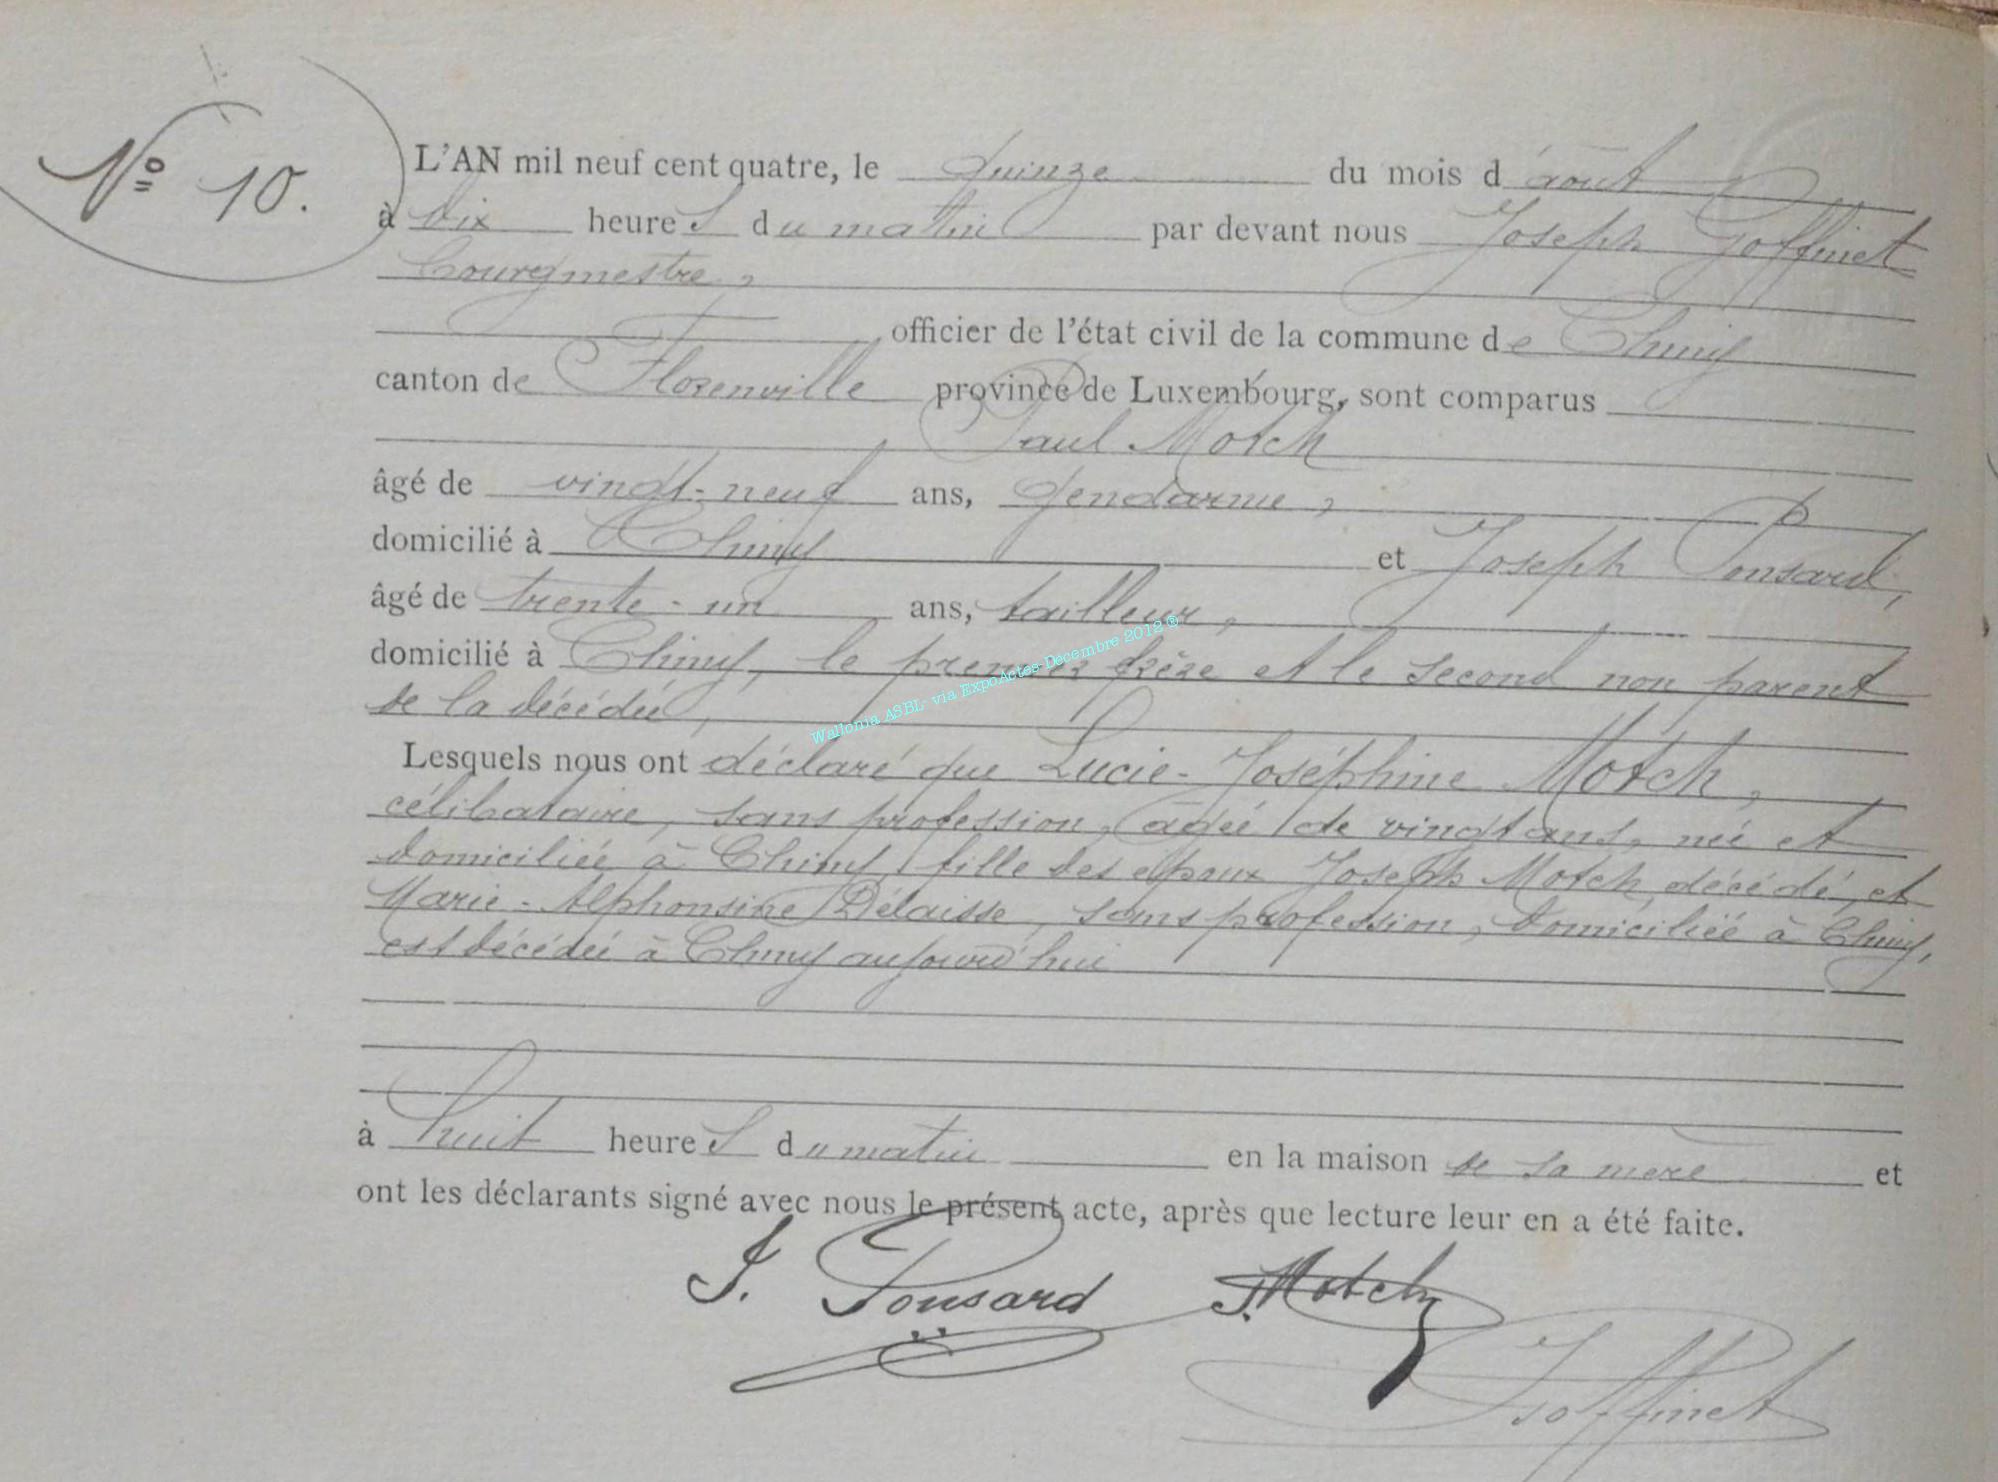 Nº 10.
L'AN mil neuf cent quatre, le quinze du mois d'août
à dix heures du matin par devant nous Joseph Goffinet
bourgmestre,
officier de l'état civil de la commune de Chiny
canton de Florenville province de Luxembourg, sont comparus
Paul Motch
âgé de vingt-neuf ans, gendarme,
domicilié à Chiny et Joseph Ponsard,
âgé de trente-un ans, tailleur,
domicilié à Chiny, le premier frère et le second non parent
de la décédée,
Wallonia ASBL- via ExpoActes-Décembre 2012 ®
Lesquels nous ont déclaré que Lucie-Joséphine Motch,
célibataire, sans profession, âgée de vingt ans, née et
domiciliée à Chiny, fille des époux Joseph Motch, décédé, et
Marie-Alphonsine Délaisse, sans profession, domiciliée à Chiny,
est décédée à Chiny aujourd'hui
à huit heures du matin en la maison de sa mère et
ont les déclarants signé avec nous le présent acte, après que lecture leur en a été faite.
J. Ponsard P. Motch
J Goffinet